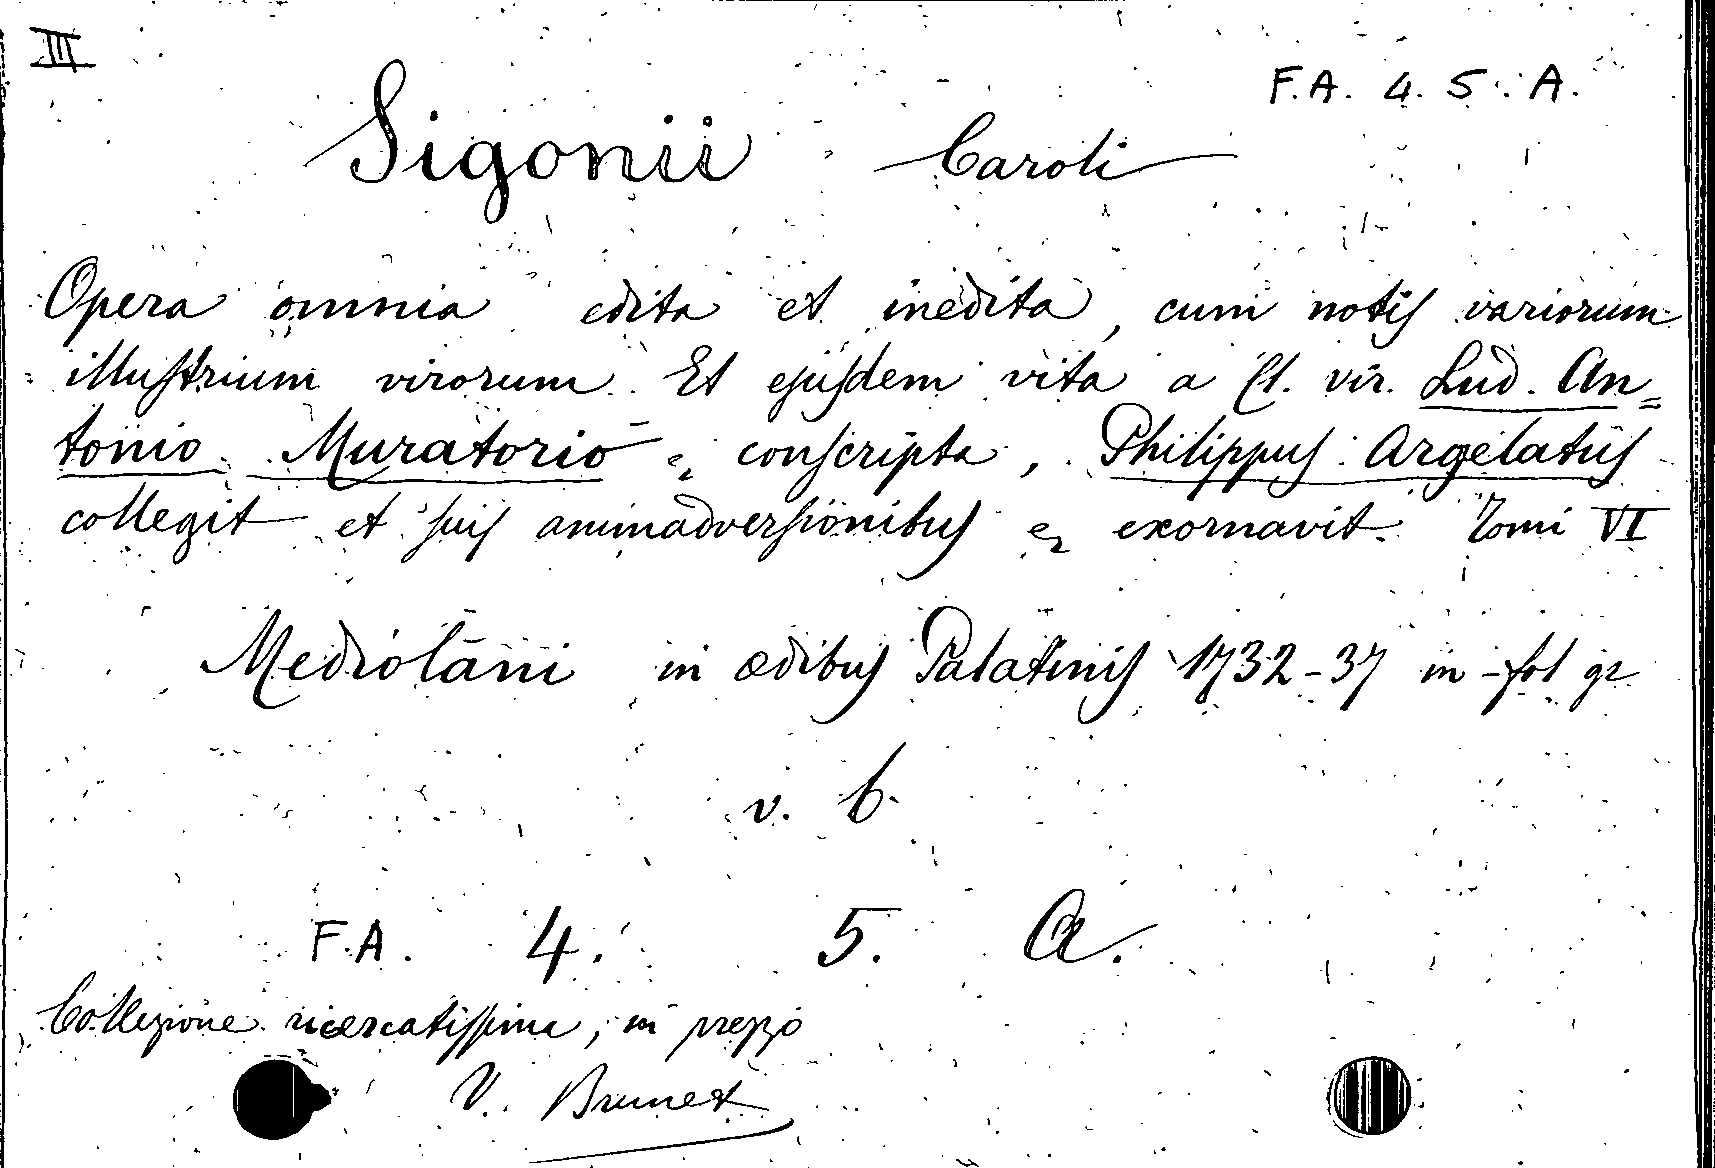 III
F.A. 4. 5. A.
Sigonii Caroli
Opera omnia edita et inedita, cum notis variorum
illustrium virorum. Et ejusdem vita a Cl. vir. Lud. An=
tonio Muratorio conscripta, Philippus Argelatus
collegit et suis animadversionibus exornavit. Tomi VI
Mediolani in ædibus Palatinis 1732-37 in-fol gr
v. 6.
F.A. 4. 5. A.
Collezione ricercatissima, in prezzo
V. Brunet